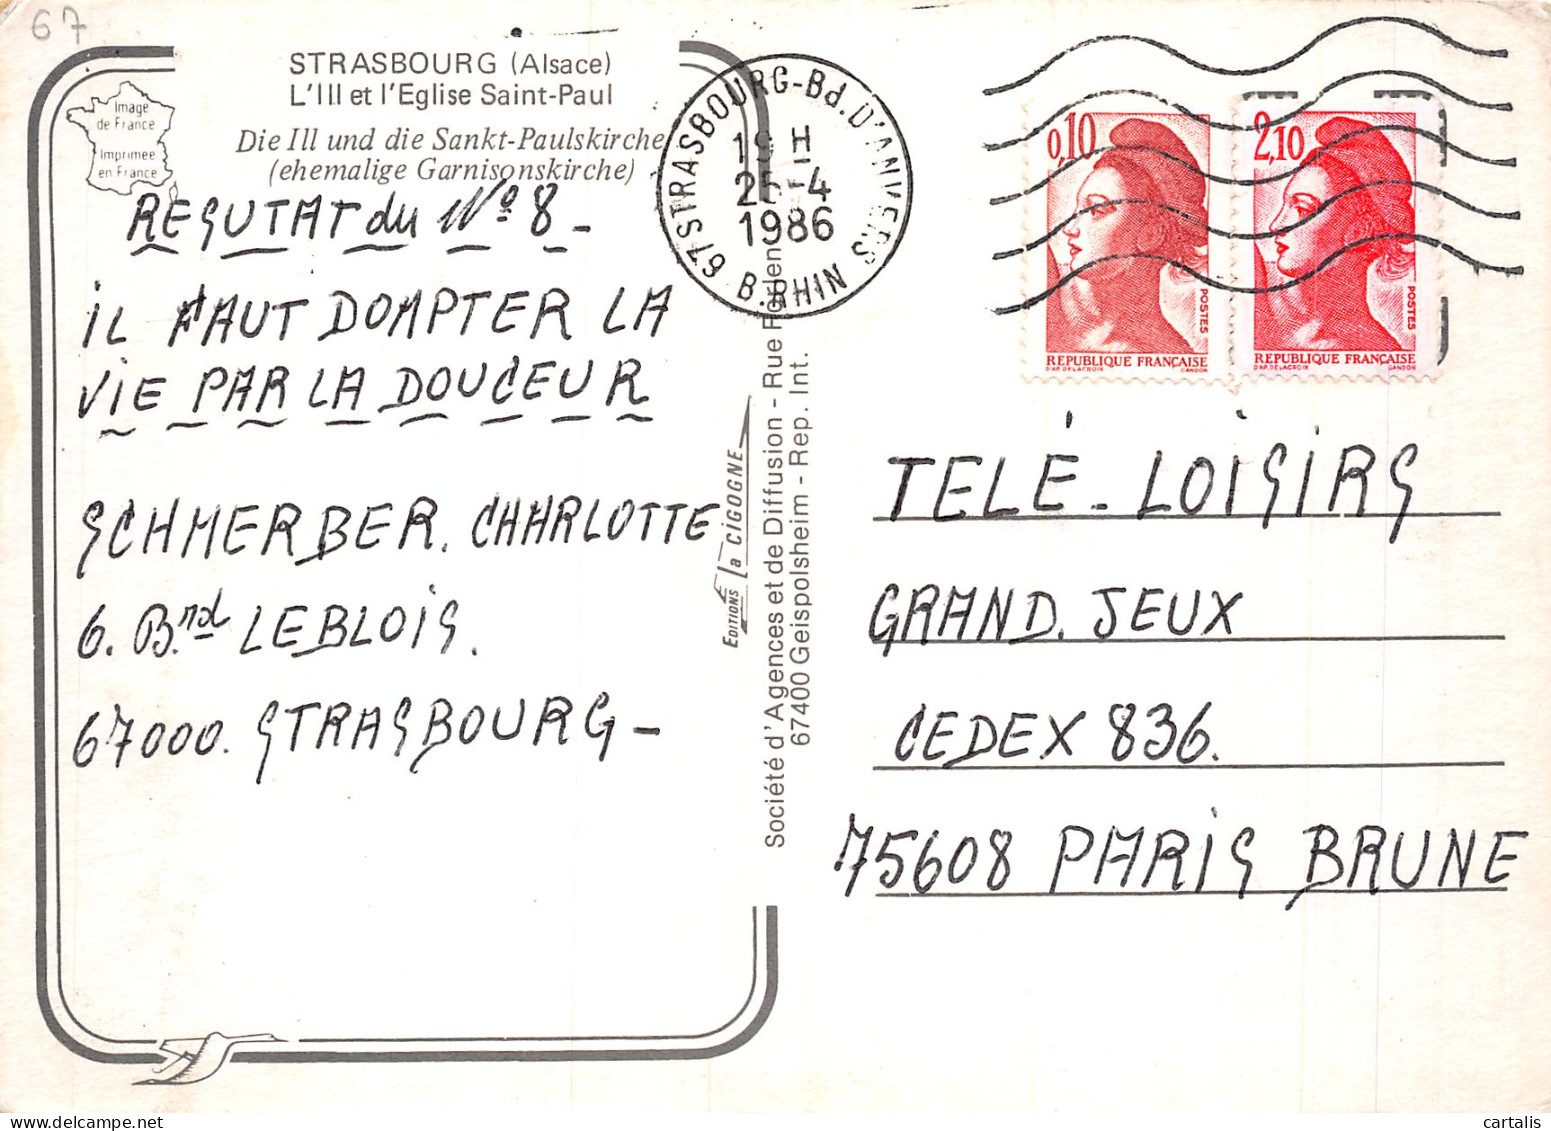 67
STRASBOURG (Alsace)
L'Ill et l'Eglise Saint-Paul
Die Ill und die Sankt-Paulskirche
(ehemalige Garnisonskirche)
Image
de France
Imprimée
en France
RESUTAT du N° 8 -
iL FAUT DOMPTER LA
ViE PAR LA DOUCEUR
SCHMERBER. CHARLOTTE
6. B.rd LEBLOiS.
67000. STRASBOURG -
67 STRASBOURG-Bd. D'ANVERS
19 H
25-4
1986
B.RHIN
EDITIONS la CIGOGNE
Société d'Agences et de Diffusion - Rue
67400 Geispolsheim - Rep. Int.
0,10
POSTES
REPUBLIQUE FRANÇAISE
D'AP. DELACROIX GANDON
2,10
POSTES
REPUBLIQUE FRANÇAISE
D'AP. DELACROIX GANDON
TELÉ - LOiSiRS
GRAND. JEUX
CEDEX 836.
75608 PARiS BRUNE
cartalis